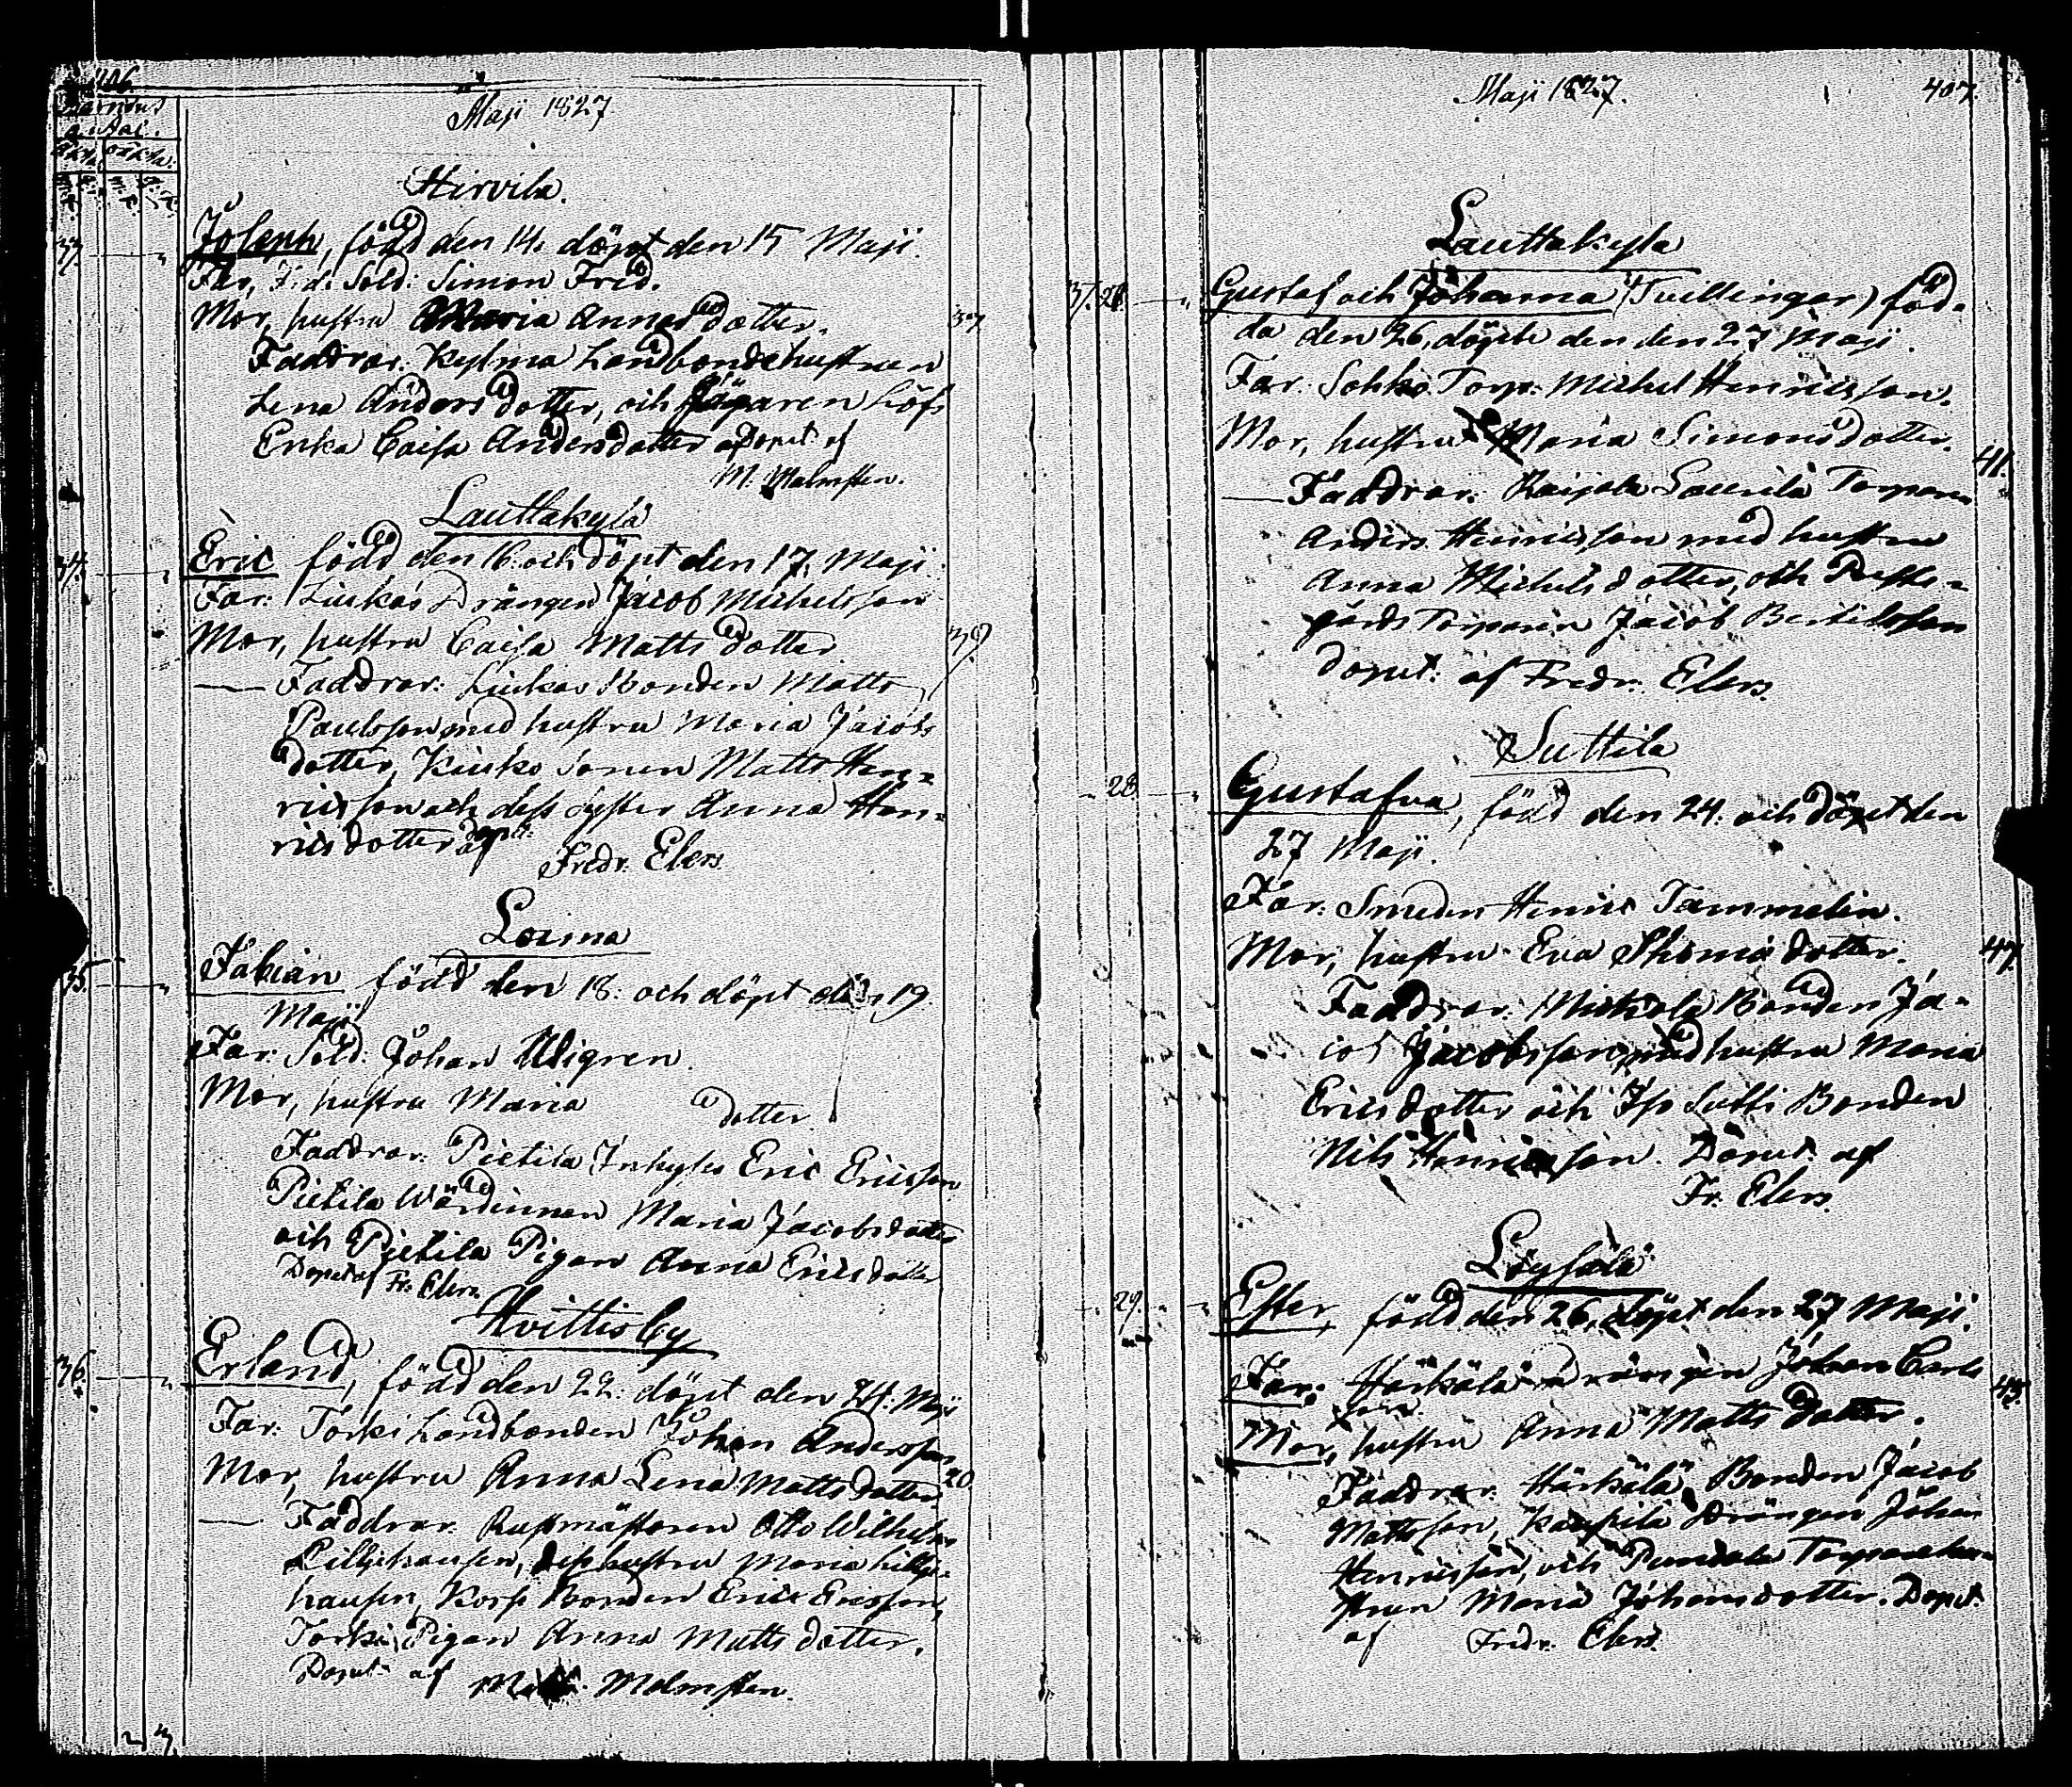 406.
Maji 1827
Hirvila.
33.
Joseph, född den 14. döpt den 15 Maji.
Far, Sold: Simon Fred.
Mor, hustru Maria Anders dotter.
37
Faddrar: Kylma Landbondehustruen
Lena Anders dotter, och
Erika Caisa Andersdotter Döpt af
M. Malmsten.
Lauttakylä
34.
Eric född den 16. och döpt den 17. Maji.
Far: Liukas Drängen Jacob Michelsson
Mor, hustru Caisa Matts dotter
39
Faddrar: Liukas Bonden Matts
Paulsson med hustru Maria Jacobs
dotter, Kiuko Sonen Matts Hen=
ricsson och dess Syster Anna Hen=
ricsdotter döpt af
Fredr. Elers.
Loima
35.
Fabian född den 18. och döpt den 19.
Maji
Far: Sold: Johan Uligren.
Mor, hustru Maria dotter
Faddrar: Pietila Inhyses Eric Ericsson
Pietila Wärdinnan Maria Jacobsdotter
och Pietila Pigan Anna Ericsdotter
Döpt af Fr. Elers.
Hvittisby
36.
Erland, född den 22. döpt den 24. Maji
Far: Torki Landbonden Johan Andersson
Mor, hustru Anna Lena Mattsdotter
20
Faddrar: Rustmästaren Otto Wilhelm
Lilljehausen, dess hustru Maria Lillje=
hausen, Korp Bonden Eric Ericsson,
Torki Pigan Anna Matts dotter.
Döpt af M. Malmsten.
Maji 1827.
407.
Lauttakyla
37. 27.
Gustaf och Johanna (Tvillingar) föd=
da den 26, döpte den den 27 Maji.
Far: Sohko Torp: Michel Henricsson.
Mor, hustru Maria Simonsdotter.
41.
Faddrar: Raijala Laurila Torparen
Anders Henricsson med hustru
Anna Michelsdotter, och Prest=
gårds Torparen Jacob Bertilsson
Döpt: af Fredr. Elers.
Suttila
28.
Gustafva, född den 24. och döpt den
27 Maji.
Far: Smeden Henric Tammelin.
Mor, hustru Eva Thomasdotter.
47.
Faddrar: Michola Bonden Ja=
cob Jacobsson med hustru Maria
Ericsdotter och Iso Sutti Bonden
Nils Henricsson. Döpt. af
Fr. Elers.
Löysälä
29.
Ester, född den 26, döpt den 27 Maji.
Far: Härkälä Drängen Johan Carls
son.
Mor, hustru Anna Matts dotter.
43.
Faddrar: Härkälä Bonden Jacob
Mattsson, Kaupila Drängen Johan
Henricsson, och Pundala Torparehu=
strun Maria Johansdotter. Döpt:
af Fredr. Elers.